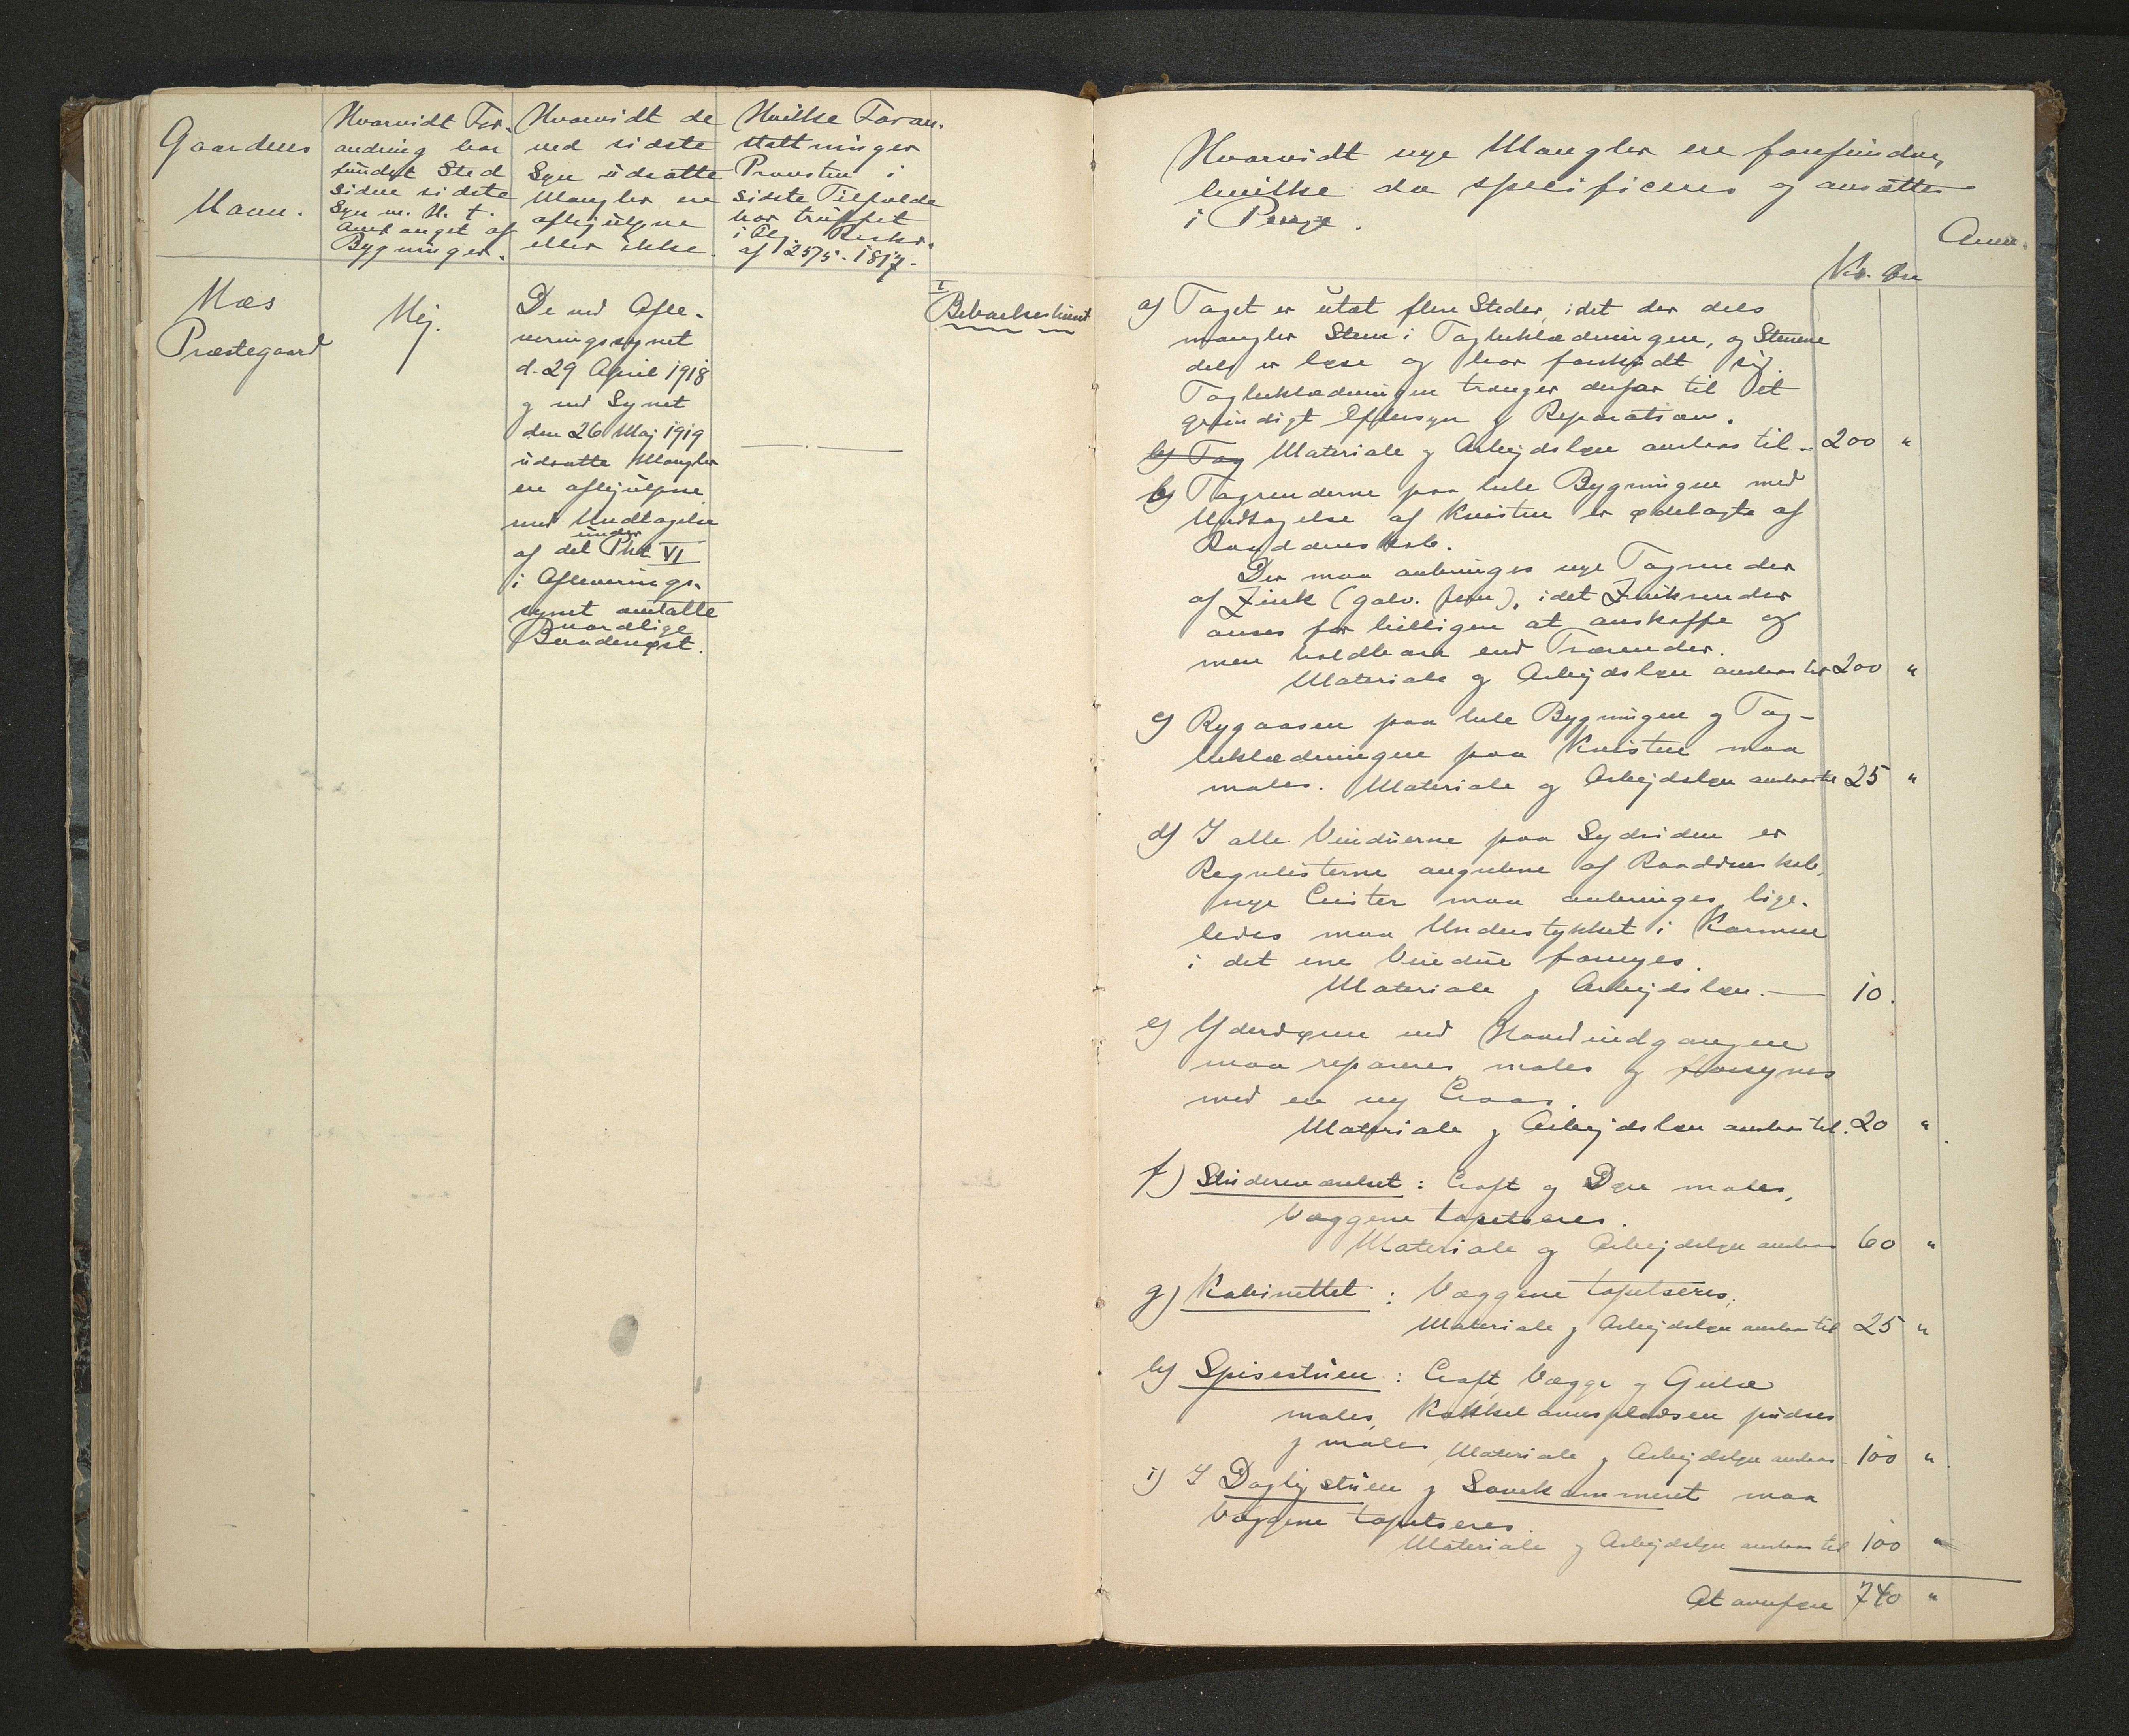 Gaardens
Navn.
Hvorvidt For-
andring har
fundet Sted
siden sidste
Syn m. H. t.
Antanget af
Bygninger.
Hvorvidt de
ved sidste
Syn udsatte
Mangler ere
afhjulpne
eller ikke.
Hvilke Foran-
staltninger
Provsten i
sidste Tilfælde
har truffet
i Flg. Reskr.
af 25/5. 1817.
Næs
Præstegaard
Nej.
De ved Afle-
veringssynet
d. 29 April 1918
og ved Synet
den 26 Maj 1919
udsatte Mangler
ere afhjulpne
med Undtagelse
af det under Pkt. VI
i Afleverings-
synet omtalte
nordlige
Baadenøst.
I
Beboelseshuset
Hvorvidt nye Mangler ere forefundne,
hvilke da specificeres og ansættes
i Penge.
Anm.
Kr. Øre
a) Taget er utæt flere Steder, idet der dels
mangler Stene i Tagbeklædningen, og Stenene
dels er løse og har forskudt sig.
Tagbeklædningen trænger derfor til et
grundigt Eftersyn og Reparation.
b) Tag Materiale og Arbejdsløn anslaas til - 200 "
b) Tagrenderne paa hele Bygningen med
Undtagelse af Kvisten er ødelagte af
Raaddenskab.
Der maa anbringes nye Tagrender
af Zink (galv. Jern), idet Zinkrender
anses for billigere at anskaffe og
mere holdbare end Trærender.
Materiale og Arbejdsløn anslaas til 200 "
c) Rygaasen paa hele Bygningen og Tag-
beklædningen paa Kvisten maa
males. Materiale og Arbejdsløn anslaas til 25 "
d) I alle Vinduerne paa Sydsiden er
Regnlisterne angrebne af Raaddenskab,
nye Lister maa anbringes, lige-
ledes maa Understykket i Karmen
i det ene Vindue fornyes.
Materiale og Arbejdsløn. — 10.
e) Yderdøren ved Hovedindgangen
maa repareres, males og forsynes
med en ny Laas.
Materiale og Arbejdsløn anslaas til. 20 "
f) Studereværelset : Loft og Døre males,
Væggene tapetseres.
Materiale og Arbejdsløn anslaas 60 "
g) Kabinettet : Væggene tapetseres.
Materiale og Arbejdsløn anslaas til 25 "
h) Spisestuen : Loft, Vægge og Gulv
males, Kakkelovnspladsen pudses
og males Materiale og Arbejdsløn anslaas - 100 "
i) I Dagligstuen og Sovekammeret maa
Væggene tapetseres.
Materiale og Arbejdsløn anslaas til 100 "
At overføre 740 "